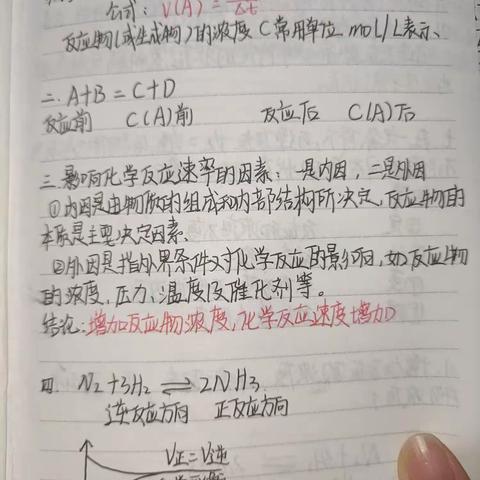 公式: V(A) = —— Δt
反应物(或生成物)的浓度C常用单位 mol/L表示、
二. A+B = C+D
反应前 C(A)前 反应后 C(A)后
三.影响化学反应速率的因素: 一是内因, 二是外因
①内因是由物质的组成和内部结构所决定,反应物的
本质是主要决定因素.
②外因是指外界条件对化学反应的影响,如反应物
的浓度,压力、温度及催化剂等。
结论:增加反应物浓度,化学反应速度增加
四. N₂+3H₂ ⇌ 2NH₃
逆反应方向 正反应方向
V正=V逆